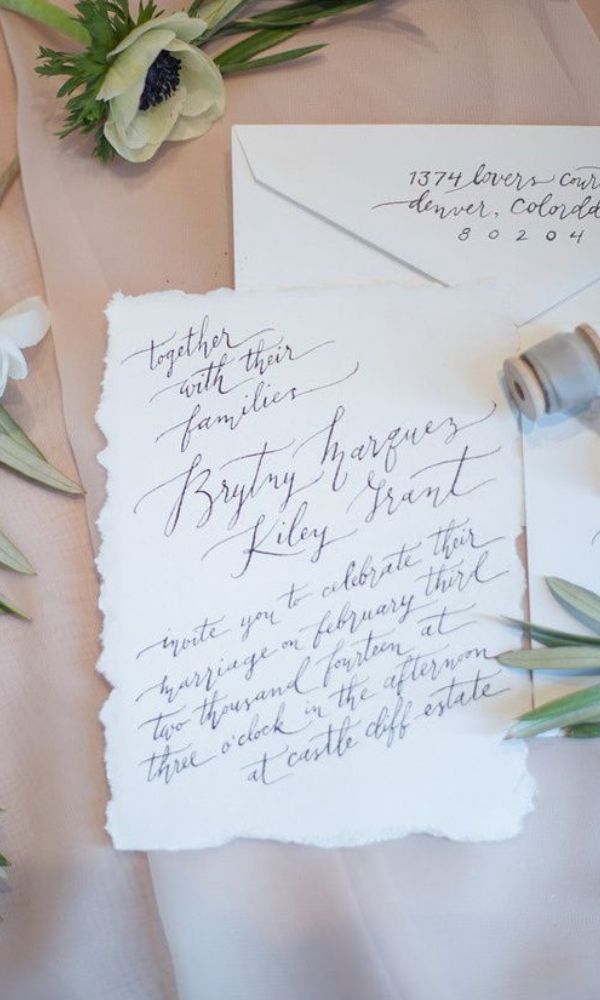 1374 lovers
denver,
80204
together
with their
families
Brytny Marquez
Kiley Grant
invite you to celebrate their
marriage on february third
two thousand fourteen at
three o'clock in the afternoon
at castle cliff estate